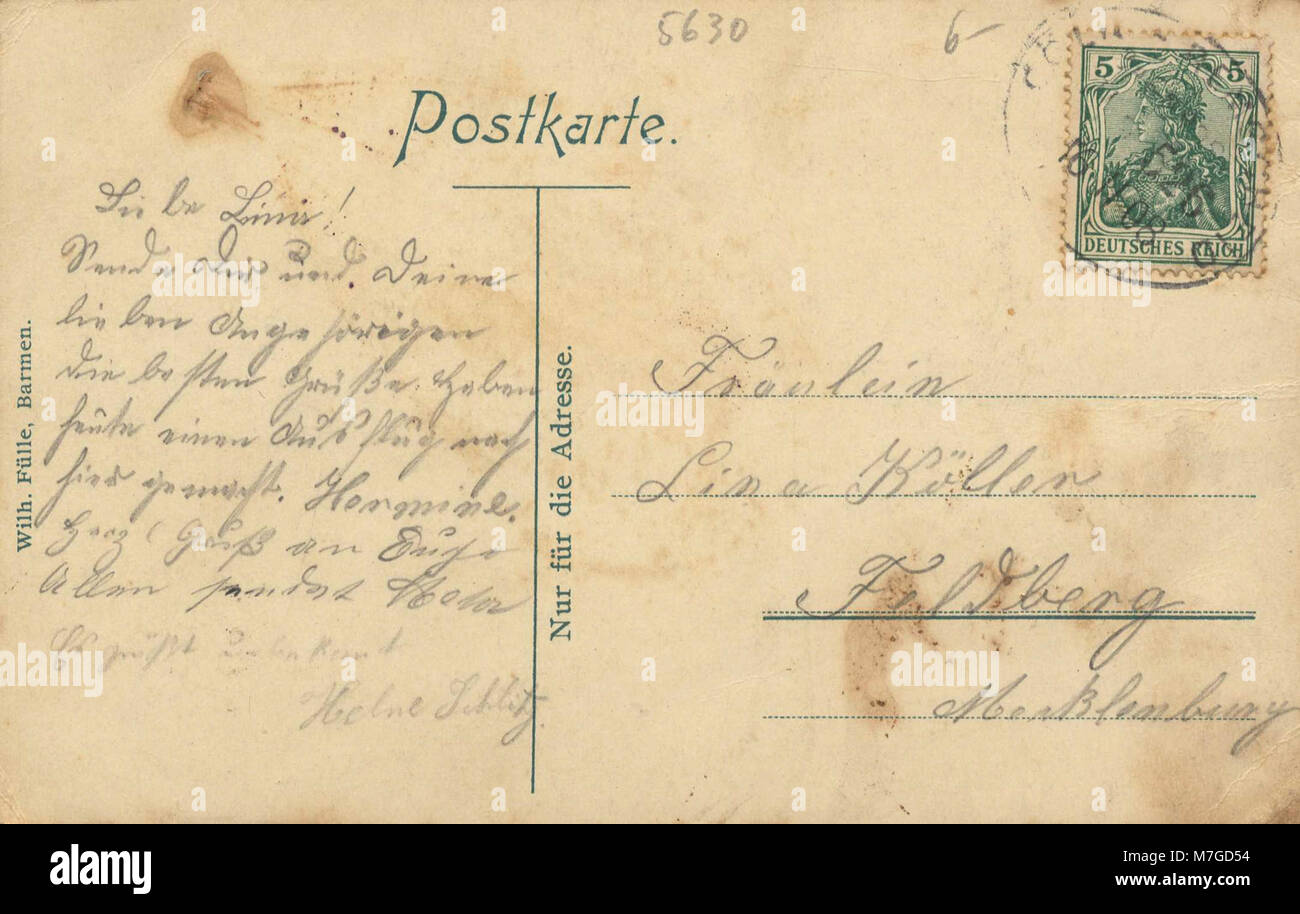 5630
6
Postkarte.
5 5
DEUTSCHES REICH
Liebe Lina!
Sende Dir und Deine
lieben Angehörigen
die besten Grüße. Haben
heute einen Ausflug nach
hier gemacht. Hermine.
Herzl Gruß an Euch
Allen sendet
grüßt unbekannt
Helne
Wilh. Fülle, Barmen.
Nur für die Adresse.
Fräulein
Lina Köller
Feldberg
Mecklenburg
alamy
alamy
Image ID: M7GD54
www.alamy.com